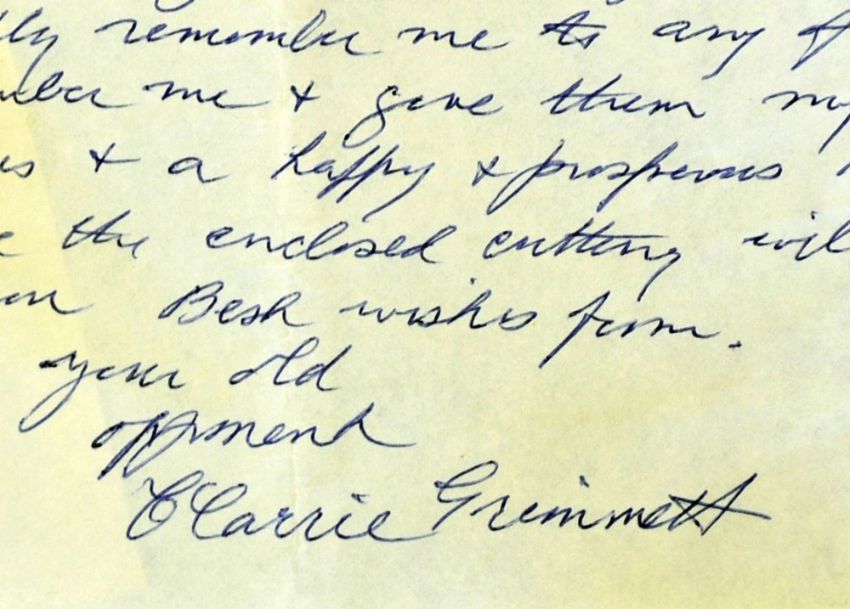 remember me to any
me & give them my
& a happy & prosperous
the enclosed cutting will
Best wishes from.
your old
opponent
Clarrie Grimmett